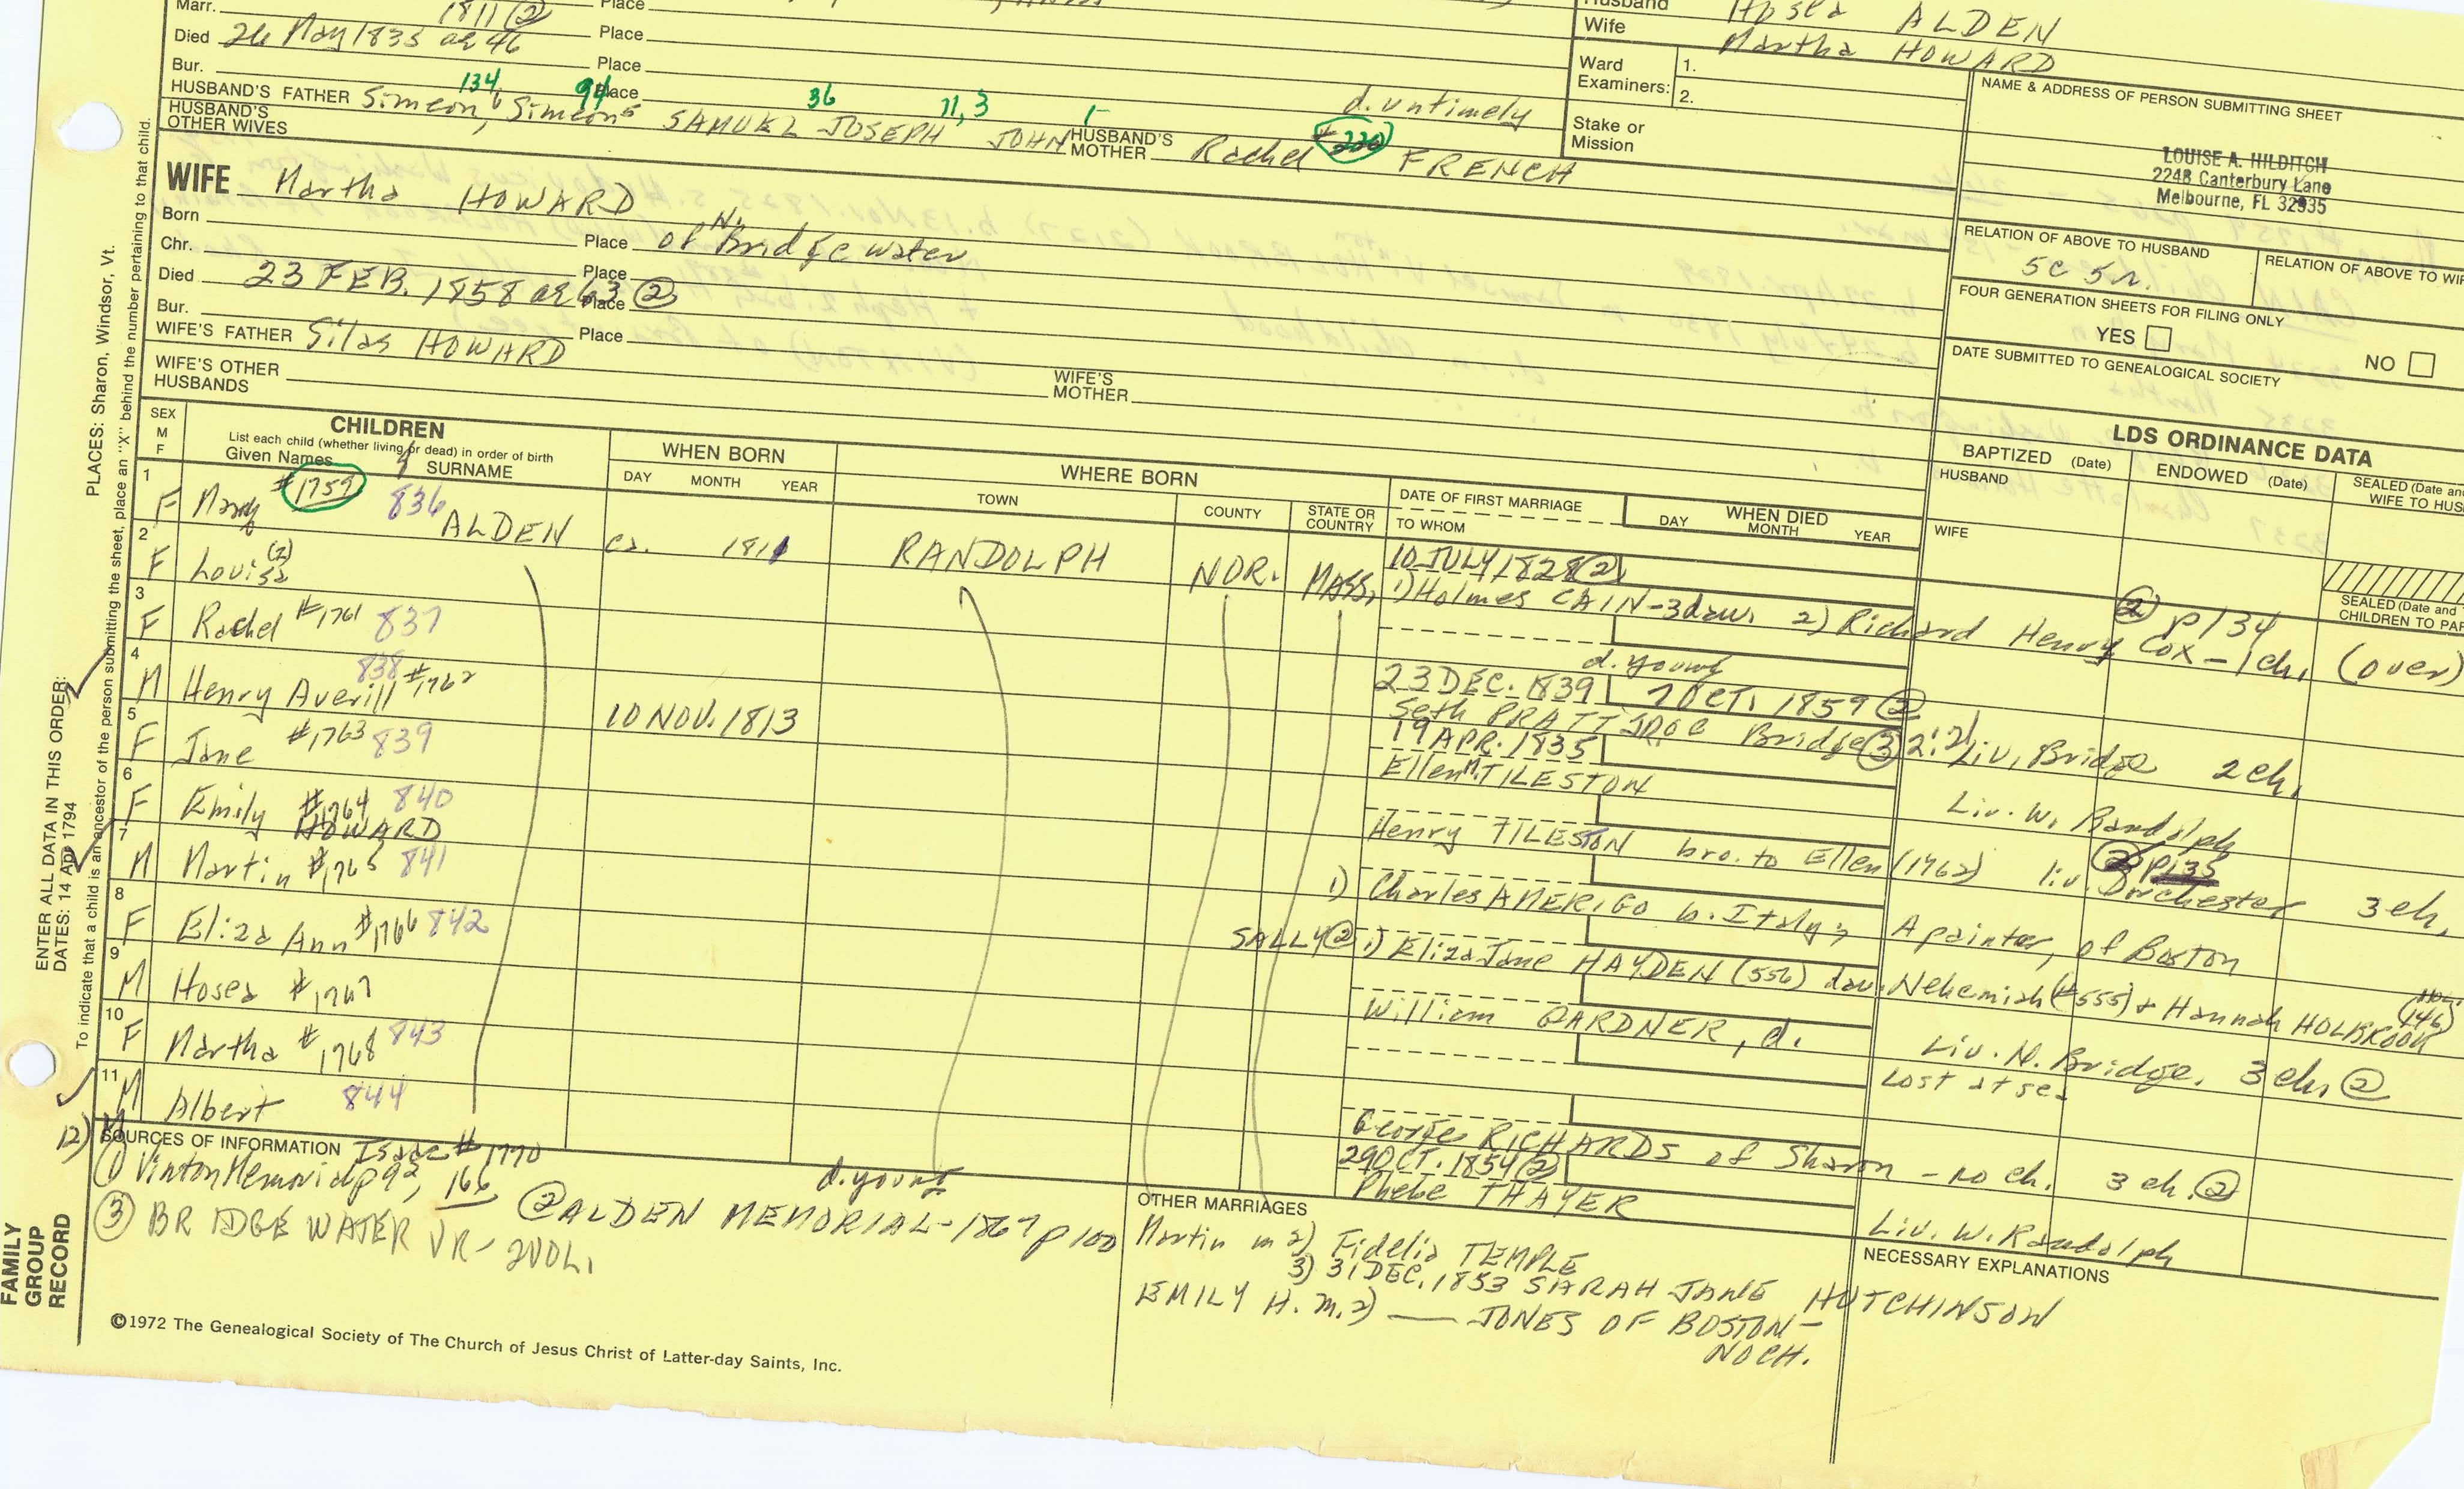 Marr. 1811 (2) Place
Died 26 May 1835 ae 46 Place
Bur. Place
HUSBAND'S FATHER Simeon 6, Simeon 5 SAMUEL JOSEPH JOHN
134 94 36 11,3 1
HUSBAND'S MOTHER Rachel #220 FRENCH
d. untimely
HUSBAND'S OTHER WIVES
Husband Hosea ALDEN
Wife Martha HOWARD
Ward Examiners: 1.
2.
Stake or Mission
NAME & ADDRESS OF PERSON SUBMITTING SHEET
LOUISE A. HILDITCH
224B Canterbury Lane
Melbourne, FL 32935
RELATION OF ABOVE TO HUSBAND
5c 5r.
RELATION OF ABOVE TO WIF
FOUR GENERATION SHEETS FOR FILING ONLY
YES NO
DATE SUBMITTED TO GENEALOGICAL SOCIETY
WIFE Martha HOWARD
Born Place of N. Bridgewater
Chr. Place
Died 23 FEB. 1858 ae 63 (2) Place
Bur. Place
WIFE'S FATHER Silas HOWARD
WIFE'S MOTHER
WIFE'S OTHER HUSBANDS
SEX M F
CHILDREN
List each child (whether living or dead) in order of birth
Given Names SURNAME
WHEN BORN
DAY MONTH YEAR
WHERE BORN
TOWN COUNTY STATE OR COUNTRY
DATE OF FIRST MARRIAGE
TO WHOM
WHEN DIED
DAY MONTH YEAR
LDS ORDINANCE DATA
BAPTIZED (Date) ENDOWED (Date) SEALED (Date and
WIFE TO HUS
HUSBAND
WIFE
SEALED (Date and
CHILDREN TO PAR
1 F Mary #1759 836 ALDEN ca. 1811 RANDOLPH NOR. MASS. 10 JULY 1828 (2)
1) Holmes CAIN - 3 dau. 2) Richard Henry Cox - 1 ch. (over)
(2) P134
2 F Louisa (2) d. young
3 F Rachel #1761 837 23 DEC. 1839 7 OCT. 1859 (2)
Seth PRATT JR. OC Bridge (3) 2:21 Liv. Bridge 2 ch.
4 M Henry Averill #1762 838 10 NOV. 1813 19 APR. 1835
Ellen M. TILESTON Liv. W. Randolph
5 F Jane #1763 839 Henry TILESTON bro. to Ellen (1762) liv. Dorchester 3 ch.
(2) P135
6 F Emily HOWARD #1764 840 1) Charles AMERIGO b. Italy, A painter, of Boston
7 M Martin #1765 841 SALLY (2) 1) Eliza Jane HAYDEN (556) dau. Nehemiah (#555) + Hannah HOLBROOK (146)
8 F Eliza Ann #1766 842 William GARDNER, d. Liv. N. Bridge. 3 ch. (2)
9 M Hosea #1767 Lost at sea
10 F Martha #1768 843 George RICHARDS of Sharon - no ch. 3 ch. (2)
11 M Albert 844 29 OCT. 1854 (2)
Phebe THAYER Liv. W. Randolph
12) M Isaac #1770 d. young
SOURCES OF INFORMATION
(1) Vinton Memorial p 92, 166
(2) ALDEN MEMORIAL - 1867 p 100
(3) BRIDGEWATER VR - 2 VOL.
OTHER MARRIAGES
Martin m 2) Fidelia TEMPLE
3) 31 DEC. 1853 SARAH JANE HUTCHINSON
EMILY H. m. 2) — JONES OF BOSTON -
NO CH.
NECESSARY EXPLANATIONS
©1972 The Genealogical Society of The Church of Jesus Christ of Latter-day Saints, Inc.
FAMILY GROUP RECORD
ENTER ALL DATA IN THIS ORDER:
DATES: 14 Apr 1794
PLACES: Sharon, Windsor, Vt.
To indicate that a child is an ancestor of the person submitting the sheet, place an "X" behind the number pertaining to that child.